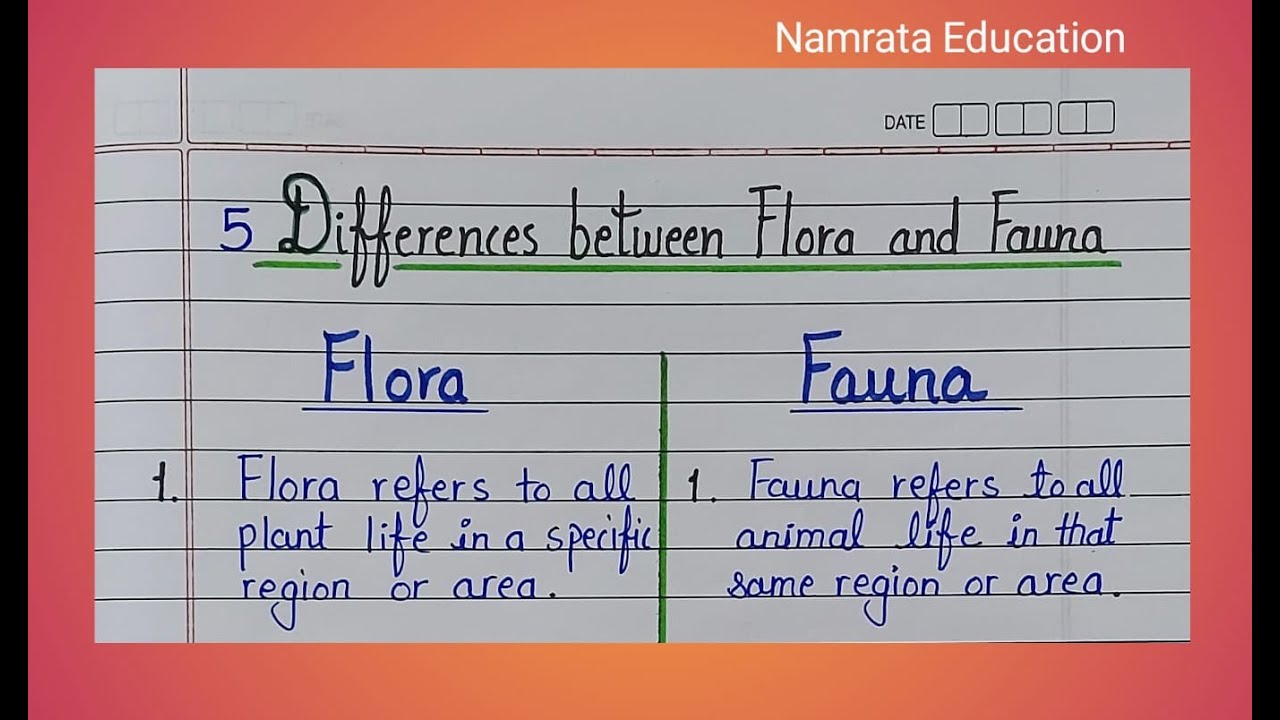 Namrata Education
DATE
5 Differences between Flora and Fauna
Flora
Fauna
1. Flora refers to all
plant life in a specific
region or area.
1. Fauna refers to all
animal life in that
same region or area.